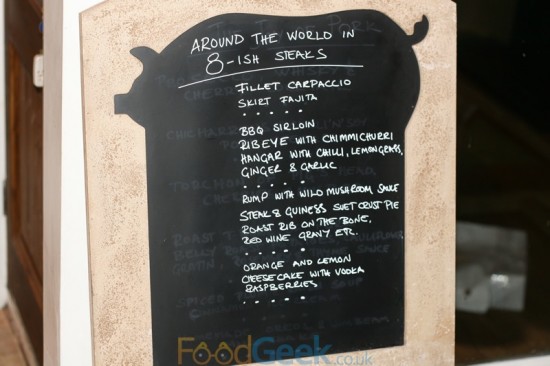 AROUND THE WORLD IN
8-ISH STEAKS
FILLET CARPACCIO
SKIRT FAJITA
BBQ SIRLOIN
RIBEYE WITH CHIMMICHURRI
HANGAR WITH CHILLI, LEMONGRASS,
GINGER & GARLIC
RUMP WITH WILD MUSHROOM SAUCE
STEAK & GUINESS SUET CRUST PIE
ROAST RIB ON THE BONE,
RED WINE GRAVY ETC.
ORANGE AND LEMON
CHEESECAKE WITH VODKA
RASPBERRIES
FoodGeek.co.uk